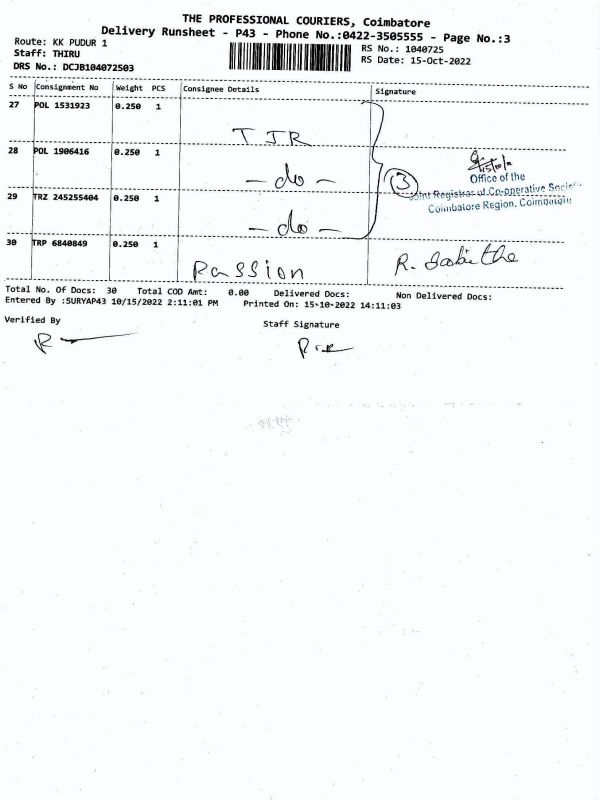 THE PROFESSIONAL COURIERS, Coimbatore
Delivery Runsheet - P43 - Phone No.:0422-3505555 - Page No.:3
Route: KK PUDUR 1
Staff: THIRU
DRS No.: DCJB104072503
RS No.: 1040725
RS Date: 15-Oct-2022
S No Consignment No Weight PCS Consignee Details Signature
27 POL 1531923 0.250 1
TJR
28 POL 1906416 0.250 1
- do -
29 TRZ 245255404 0.250 1
- do -
3
Office of the
Joint Registrar of Co-operative Societies
Coimbatore Region, Coimbatore
30 TRP 6840849 0.250 1
Passion R. Sabitha
Total No. Of Docs: 30 Total COD Amt: 0.00 Delivered Docs: Non Delivered Docs:
Entered By :SURYAP43 10/15/2022 2:11:01 PM Printed On: 15-10-2022 14:11:03
Verified By Staff Signature